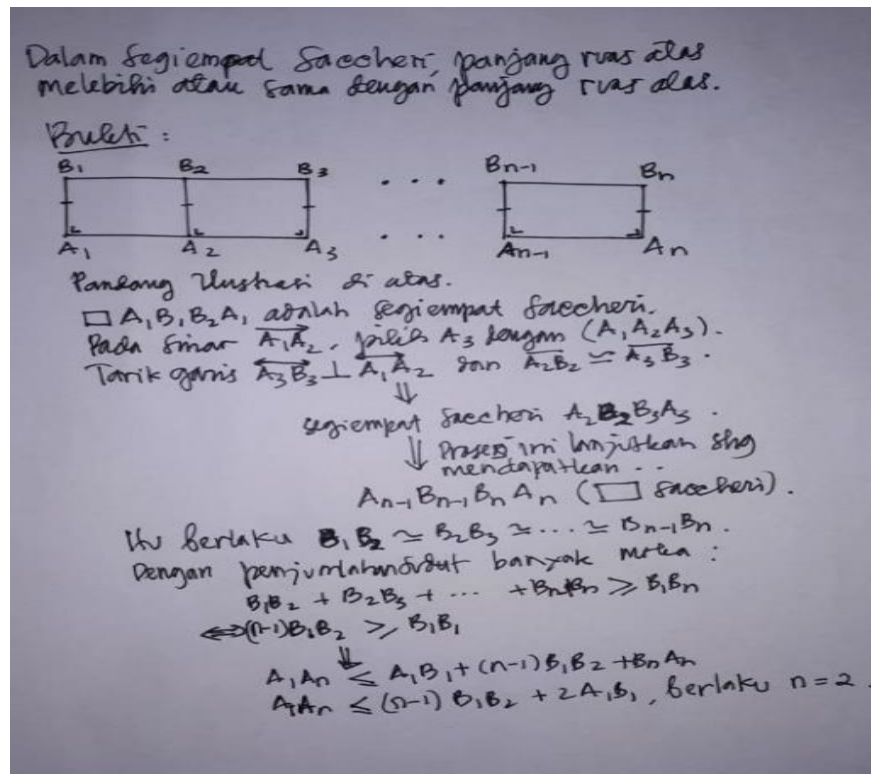 Dalam Segiempat Saccheri, panjang ruas atas
melebihi atau sama dengan panjang ruas alas.
Bukti :
B₁ B₂ B₃ . . . Bn-1 Bn
A₁ A₂ A₃ . . . An-1 An
Pandang Ilustrasi di atas.
□ A₁B₁B₂A₁ adalah segiempat Saccheri.
Pada Sinar A₁A₂, pilih A₃ dengan (A₁A₂A₃).
Tarik garis A₃B₃ ⊥ A₁A₂ dan A₂B₂ ≃ A₃B₃.
⇓
segiempat Saccheri A₂B₂B₃A₃.
⇓ Proses ini lanjutkan shg
mendapatkan . .
An-1Bn-1BnAn (▭ Saccheri).
Itu berlaku B₁B₂ ≃ B₂B₃ ≃ ... ≃ Bn-1Bn.
Dengan banyak maka :
B₁B₂ + B₂B₃ + ... + ⩾ B₁Bn
⟺ (n-1)B₁B₂ ⩾ B₁B₁
⇓
A₁An ≤ A₁B₁ + (n-1)B₁B₂ + BnAn
A₁An ≤ (n-1) B₁B₂ + 2A₁B₁, berlaku n = 2.